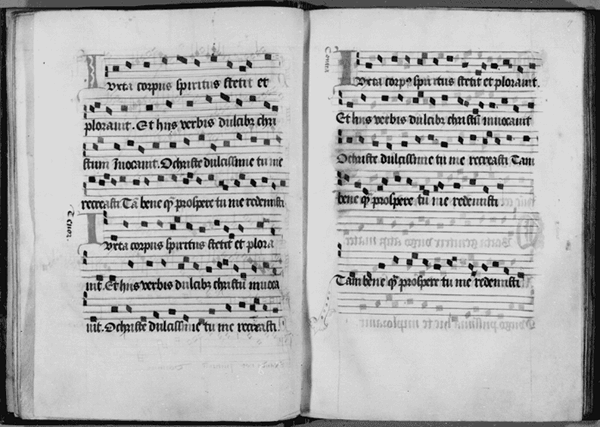 Iuxta corpus spiritus stetit et
plorauit. Et hijs verbis dulcibꝫ chri
stum Inocauit. O christe dulcissime tu me
recreasti Tā bene qꝫ prospere tu me redemisti
Tenor
Iuxta corpus spiritus stetit et plora
uit. Et hijs verbis dulcibꝫ christū inuoca
uit. O christe dulcissime tu me recreasti
Iuxta corpꝰ spiritus stetit et plorauit.
Et hijs verbis dulcibꝫ christū inuocauit
O christe dulcissime tu me recreasti Tam
bene qꝫ prospere tu me redemisti
Tam bene qꝫ prospere tu me redemisti